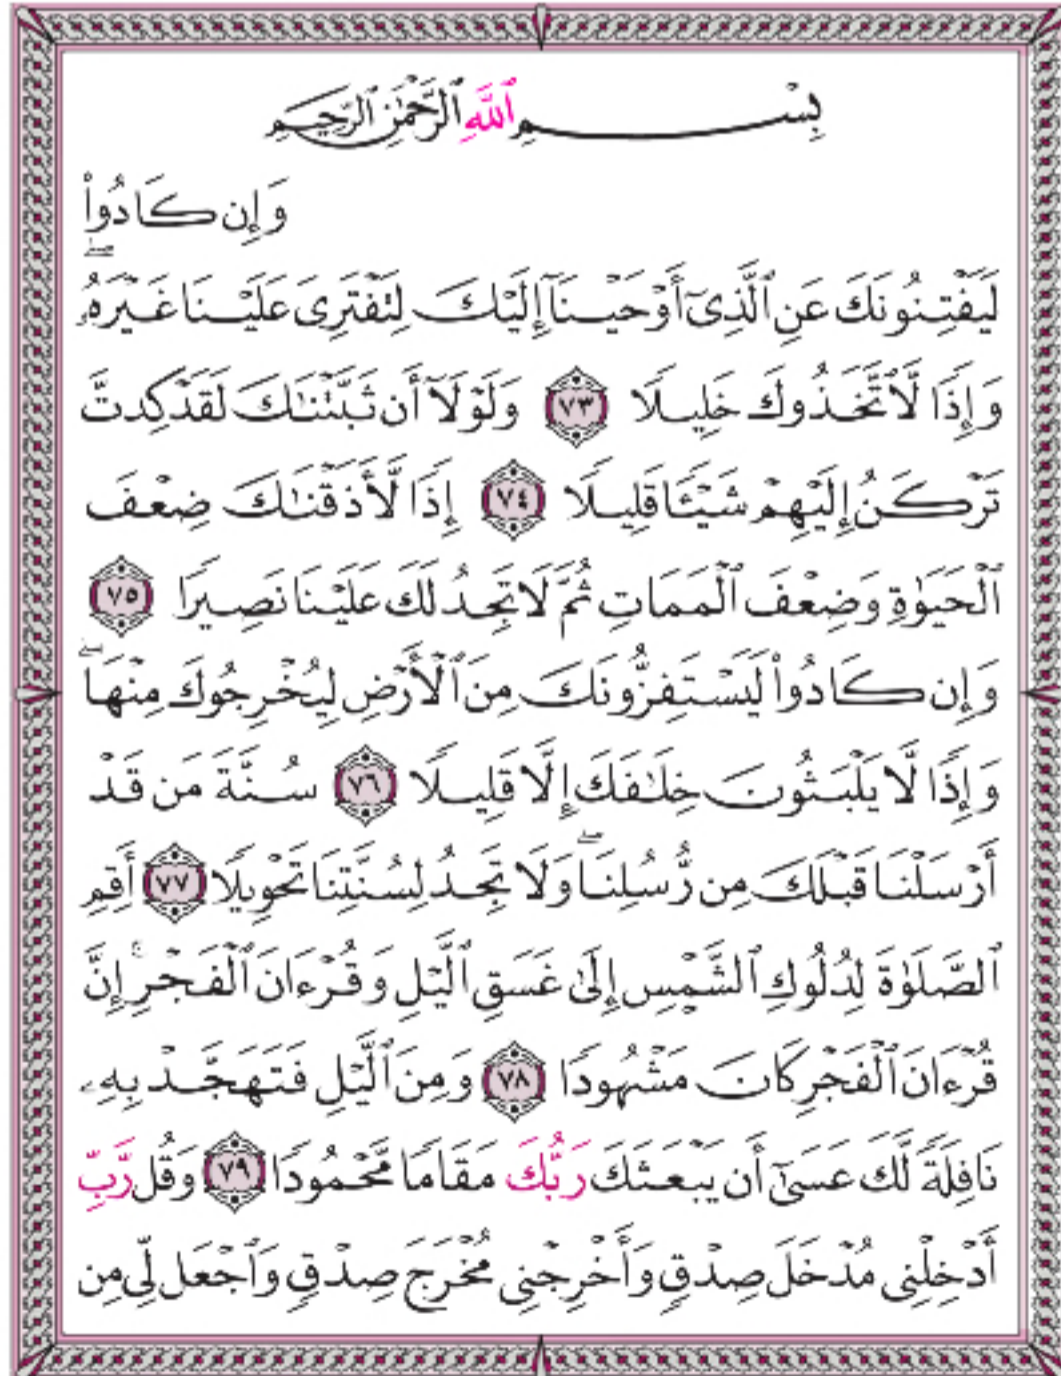 بِسْمِ ٱللَّهِ ٱلرَّحْمَٰنِ ٱلرَّحِيمِ
وَإِن كَادُوا۟
لَيَفْتِنُونَكَ عَنِ ٱلَّذِىٓ أَوْحَيْنَآ إِلَيْكَ لِتَفْتَرِىَ عَلَيْنَا غَيْرَهُۥ ۖ
وَإِذًا لَّٱتَّخَذُوكَ خَلِيلًا ٧٣ وَلَوْلَآ أَن ثَبَّتْنَٰكَ لَقَدْ كِدتَّ
تَرْكَنُ إِلَيْهِمْ شَيْـًٔا قَلِيلًا ٧٤ إِذًا لَّأَذَقْنَٰكَ ضِعْفَ
ٱلْحَيَوٰةِ وَضِعْفَ ٱلْمَمَاتِ ثُمَّ لَا تَجِدُ لَكَ عَلَيْنَا نَصِيرًا ٧٥
وَإِن كَادُوا۟ لَيَسْتَفِزُّونَكَ مِنَ ٱلْأَرْضِ لِيُخْرِجُوكَ مِنْهَا ۖ
وَإِذًا لَّا يَلْبَثُونَ خِلَٰفَكَ إِلَّا قَلِيلًا ٧٦ سُنَّةَ مَن قَدْ
أَرْسَلْنَا قَبْلَكَ مِن رُّسُلِنَا ۖ وَلَا تَجِدُ لِسُنَّتِنَا تَحْوِيلًا ٧٧ أَقِمِ
ٱلصَّلَوٰةَ لِدُلُوكِ ٱلشَّمْسِ إِلَىٰ غَسَقِ ٱلَّيْلِ وَقُرْءَانَ ٱلْفَجْرِ ۖ إِنَّ
قُرْءَانَ ٱلْفَجْرِ كَانَ مَشْهُودًا ٧٨ وَمِنَ ٱلَّيْلِ فَتَهَجَّدْ بِهِۦ
نَافِلَةً لَّكَ عَسَىٰٓ أَن يَبْعَثَكَ رَبُّكَ مَقَامًا مَّحْمُودًا ٧٩ وَقُل رَّبِّ
أَدْخِلْنِى مُدْخَلَ صِدْقٍ وَأَخْرِجْنِى مُخْرَجَ صِدْقٍ وَٱجْعَل لِّى مِن